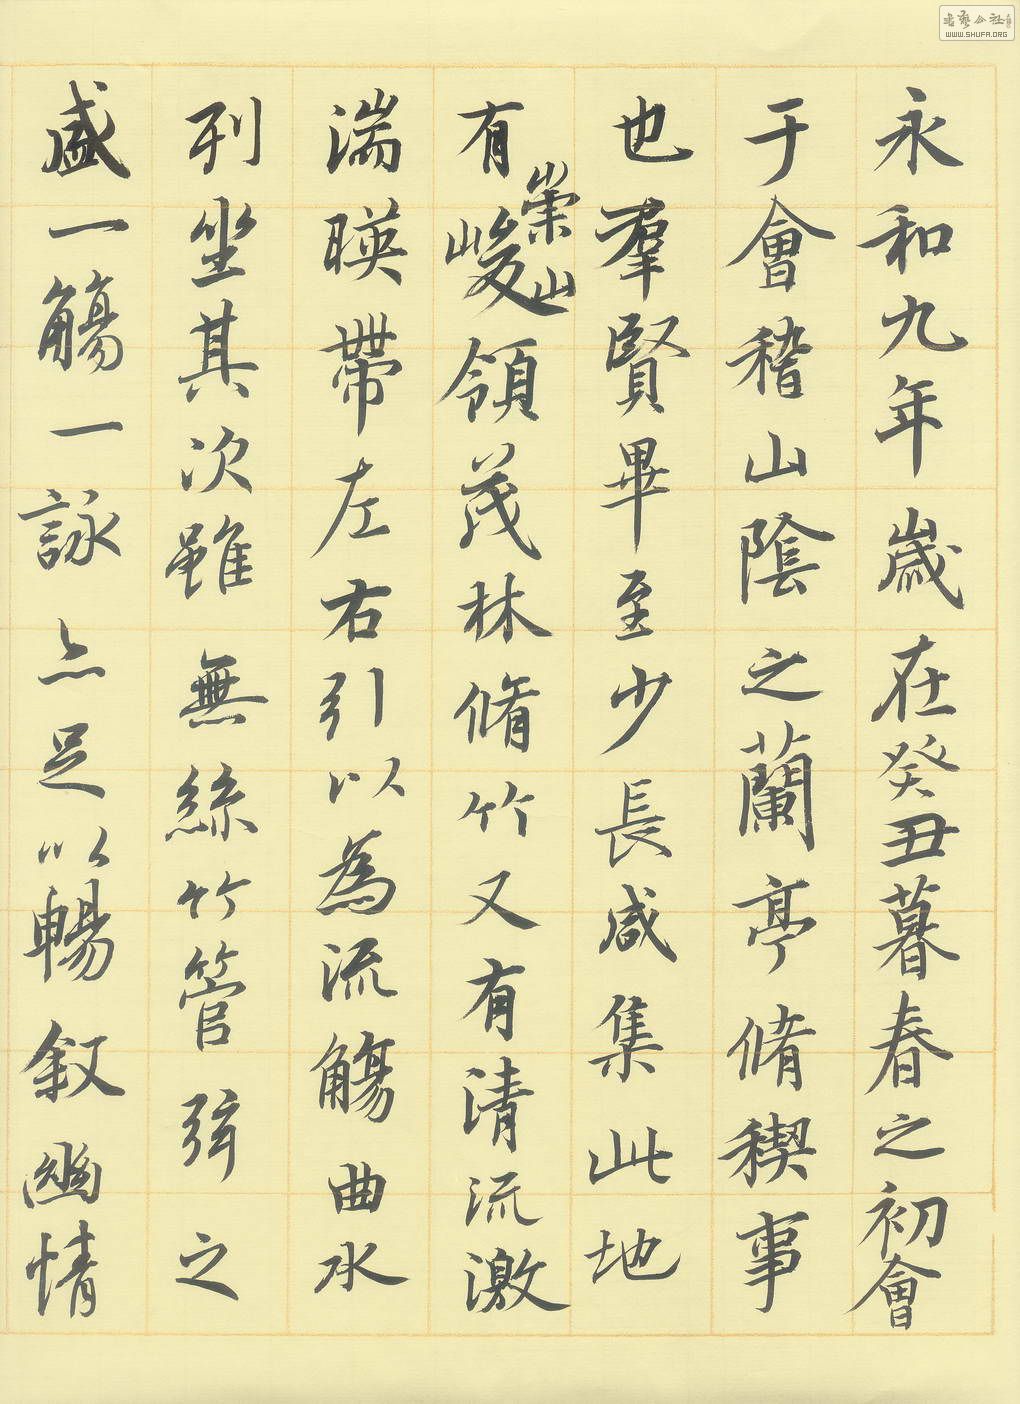 永和九年歲在癸丑暮春之初會
于會稽山陰之蘭亭脩稧事
也羣賢畢至少長咸集此地
有崇山峻領茂林脩竹又有清流激
湍暎帶左右引以為流觴曲水
列坐其次雖無絲竹管弦之
盛一觴一詠亦足以暢敘幽情
WWW.SHUFA.ORG